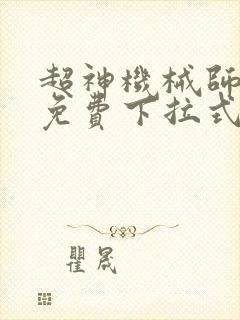 超神機械師
免費下拉式
瞿晟